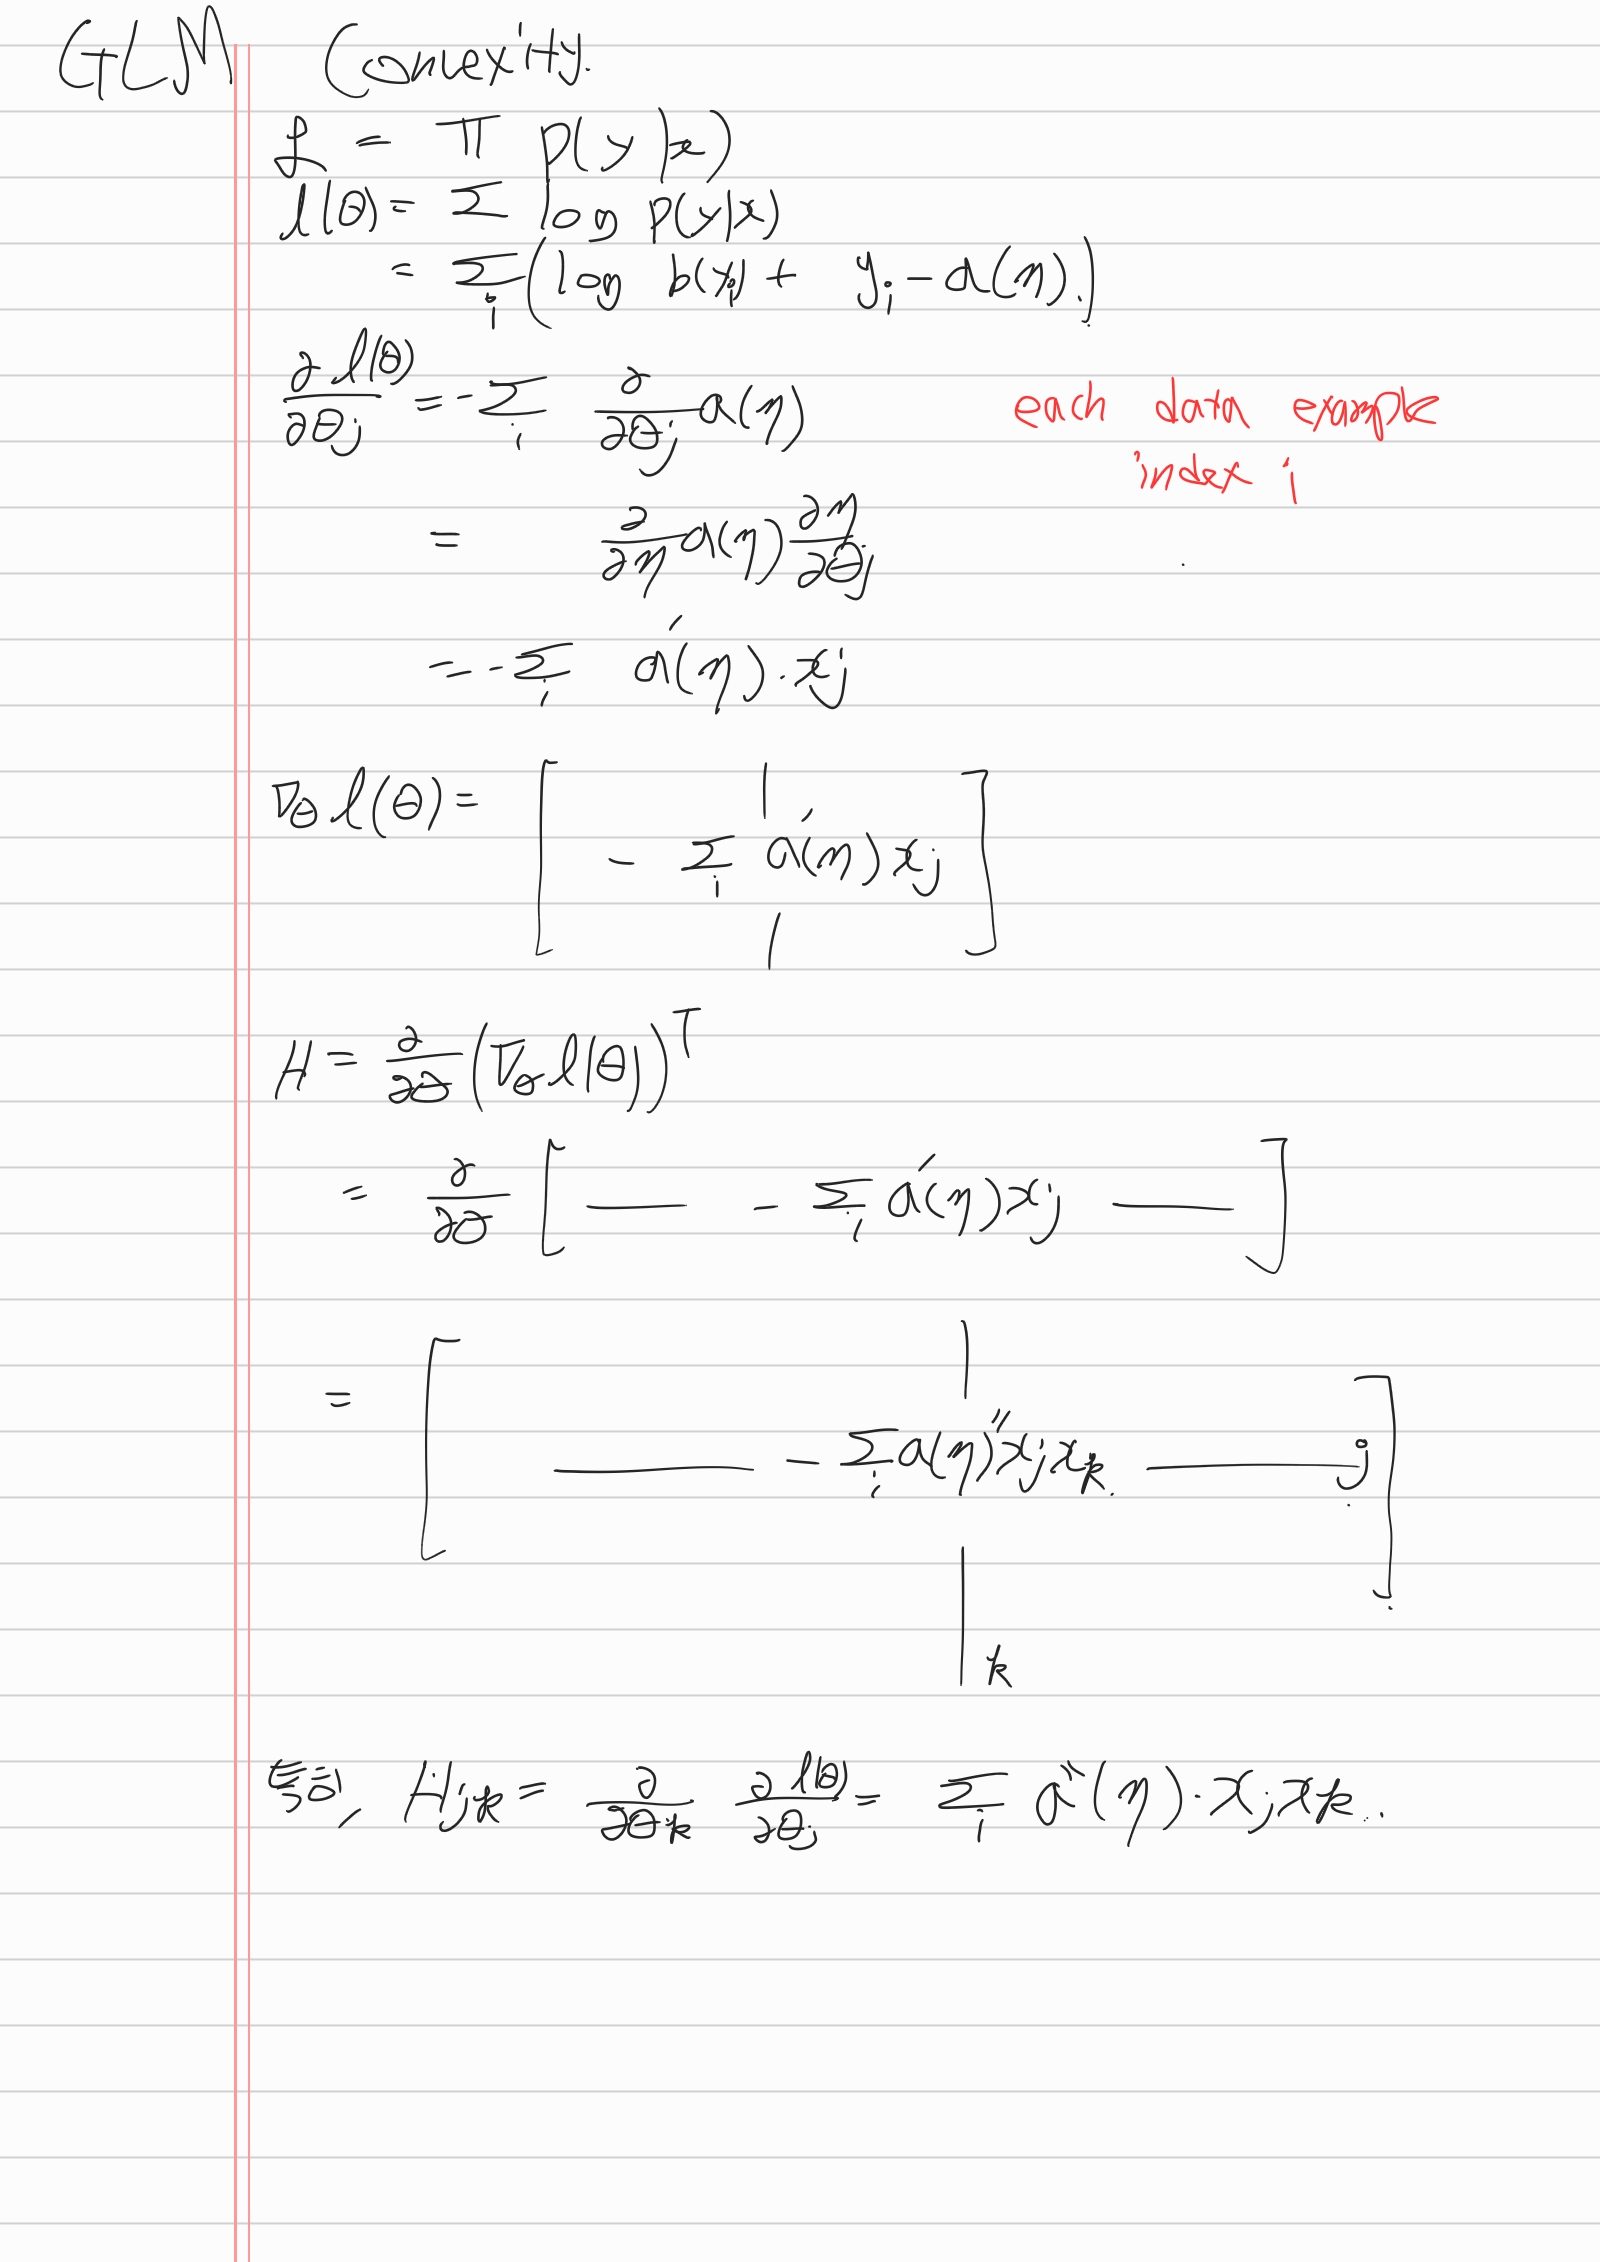 GLM Convexity.
L = Π p(y|x)
l(θ) = Σ log p(y|x)
= Σ_i (log b(y_i) + y_i - a(η).)
∂l(θ)/∂θ_j = - Σ_i ∂/∂θ_j a(η)
each data example
index i
= ∂/∂η a(η) ∂η/∂θ_j
= - Σ_i a'(η) · x_j
∇_θ l(θ) = [ | - Σ_i a'(η) x_j | ]
H = ∂/∂θ (∇_θ l(θ))^T
= ∂/∂θ [ — - Σ_i a'(η) x_j — ]
= [ — - Σ_i a(η)'' x_j x_k — j ]
k
특히, H_jk = ∂/∂θ_k ∂l(θ)/∂θ_j = Σ_i a''(η) · x_j x_k.